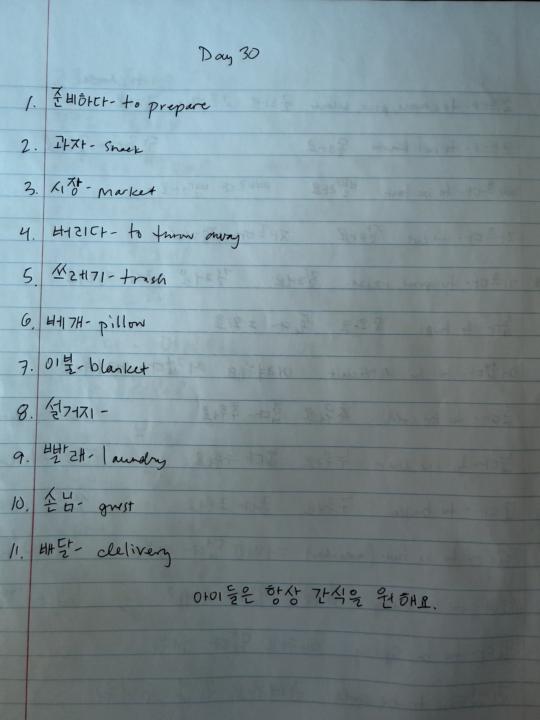 Day 30
1. 준비하다 - to prepare
2. 과자 - snack
3. 시장 - market
4. 버리다 - to throw away
5. 쓰레기 - trash
6. 베개 - pillow
7. 이불 - blanket
8. 설거지 -
9. 빨래 - laundry
10. 손님 - guest
11. 배달 - delivery
아이들은 항상 간식을 원해요.